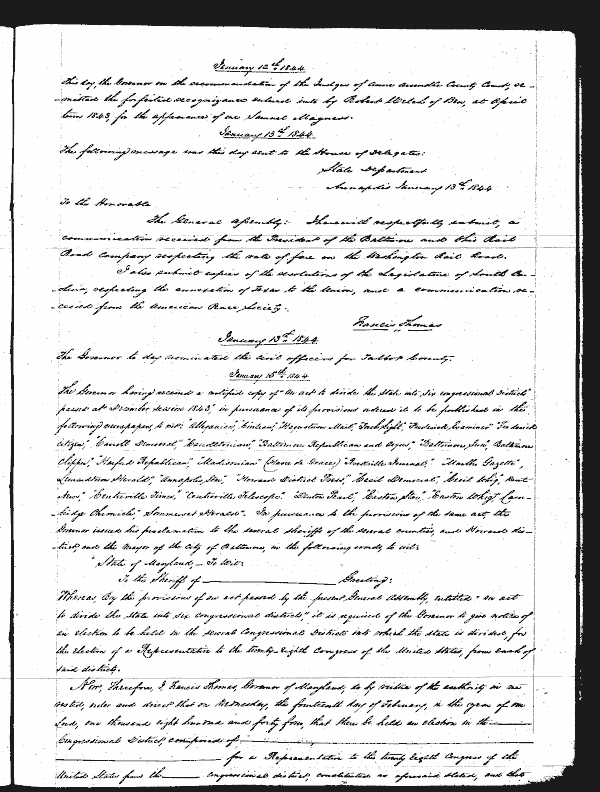 January 12th 1844
This day, the Governor on the recommendation of the Judges of Anne Arundel County Court, re-
mitted the forfeited recognizance entered into by Robert Welch of Ben, at April
term 1843, for the appearance of one Samuel Magness.
January 13th 1844
The following message was this day sent to the House of Delegates:
State Department
Annapolis January 13th 1844
To the Honorable
The General Assembly: I herewith respectfully submit, a
communication received from the President of the Baltimore and Ohio Rail
Road Company respecting the rate of fare on the Washington Rail Road.
I also submit copies of the resolutions of the Legislature of South Ca-
rolina, respecting the annexation of Texas to the Union, and a communication re-
ceived from the American Peace Society.
Francis Thomas
January 13th 1844
The Governor to day nominated the civil officers for Talbot County.
January 15th 1844
The Governor having received a certified copy of "An act to divide the state into six congressional districts"
passed at December session 1843, in pursuance of its provisions ordered it to be published in the
following newspapers, to wit: "Alleganian," "Civilian," "Hagerstown Mail," "Torch Light," "Frederick Examiner" "Frederick
Citizen," "Carroll Democrat," "Carrolltonian," "Baltimore Republican and Argus," "Baltimore Sun," Baltimore
Clipper," "Harford Republican," "Madisonian" (Havre de Grace) "Rockville Journal," "Marlbro Gazette,"
Leonardtown Herald," "Annapolis "Howard District Press," "Cecil Democrat," "Cecil Whig," Kent
News," "Centreville Times," "Centreville Telescope," "Easton Star," "Easton Whig," Cam-
bridge Chronicle," "Somerset Herald". In pursuance to the provisions of the same act, the
Governor issued his proclamation to the several sheriffs of the several counties, and Howard dis-
trict, and the Mayor of the city of Baltimore, in the following words, to wit:
"State of Maryland, - To Wit:
To the Sheriff of Greeting:
Whereas, By the provisions of an act passed by the present General Assembly, entitled "an act
to divide the state into six congressional districts," it is required of the Governor to give notice of
an election to be held in the several Congressional Districts into which the state is divided, for
the election of a Representative to the twenty-eighth Congress of the United States, from each of
said districts.
Now, Therefore, I, Francis Thomas, Governor of Maryland, do by virtue of the authority in me
vested, order and direct that on Wednesday, the fourteenth day of February, in the year of our
Lord, one thousand eight hundred and forty four, that there be held an election in the
Congressional District, composed of
for a Representative to the twenty eighth Congress of the
United States from the congressional district, constituted as aforesaid stated, and that